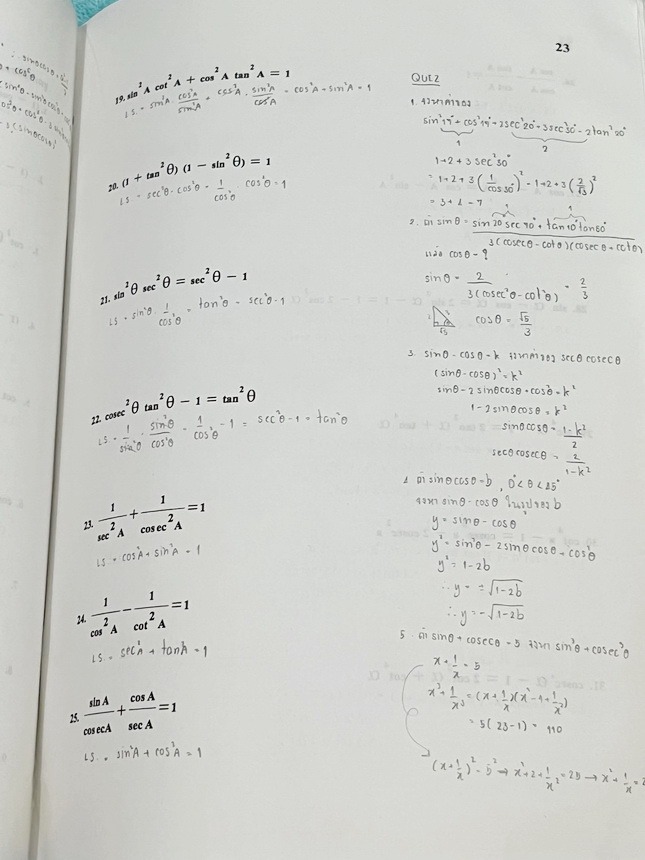 23
19. sin²A cot²A + cos²A tan²A = 1
LS. = sin²A cos²A/sin²A + cos²A · sin²A/cos²A = cos²A + sin²A = 1
20. (1 + tan²θ) (1 − sin²θ) = 1
LS = sec²θ · cos²θ = 1/cos²θ cos²θ = 1
21. sin²θ sec²θ = sec²θ − 1
LS = sin²θ · 1/cos²θ = tan²θ = sec²θ - 1
22. cosec²θ tan²θ − 1 = tan²θ
LS = 1/sin²θ · sin²θ/cos²θ = 1/cos²θ - 1 = sec²θ - 1 = tan²θ
23. 1/sec²A + 1/cosec²A = 1
LS = cos²A + sin²A = 1
24. 1/cos²A − 1/cot²A = 1
LS. = sec²A + tanA = 1
25. sin A/cosec A + cos A/sec A = 1
LS. = sin²A + cos²A = 1
QUIZ
1. จงหาค่าของ
sin²19° + cos²19° + 2sec²20° + 3sec²30° - 2tan²20°
1 2
1 + 2 + 3 sec²30°
= 1 + 2 + 3 (1/cos30°)² = 1 + 2 + 3 (2/√3)²
= 3 + 4 = 7
2. ถ้า sinθ = sin20°sec70° + tan10°tan80° / 3(cosecθ - cotθ)(cosecθ + cotθ)
แล้ว cosθ = ?
sinθ = 2/3(cosec²θ - cot²θ) = 2/3
cosθ = √5/3
3. sinθ - cosθ = k จงหาค่าของ secθ cosecθ
(sinθ - cosθ)² = k²
sin²θ - 2sinθcosθ + cos²θ = k²
1 - 2sinθcosθ = k²
sinθcosθ = 1-k²/2
secθcosecθ = 2/1-k²
4. ถ้า sinθcosθ = b , 0° < θ < 45°
จงหา sinθ - cosθ ในรูปของ b
y = sinθ - cosθ
y² = sin²θ - 2sinθcosθ + cos²θ
y² = 1 - 2b
∴ y = ±√1-2b
∴ y = -√1-2b
5. ถ้า sinθ + cosecθ = 5 จงหา sin³θ + cosec³θ
x + 1/x = 5
x³ + 1/x³ = (x + 1/x)(x² - 1 + 1/x²)
= 5(23-1) = 110
(x + 1/x)² = 5² → x² + 2 + 1/x² = 25 → x² + 1/x =